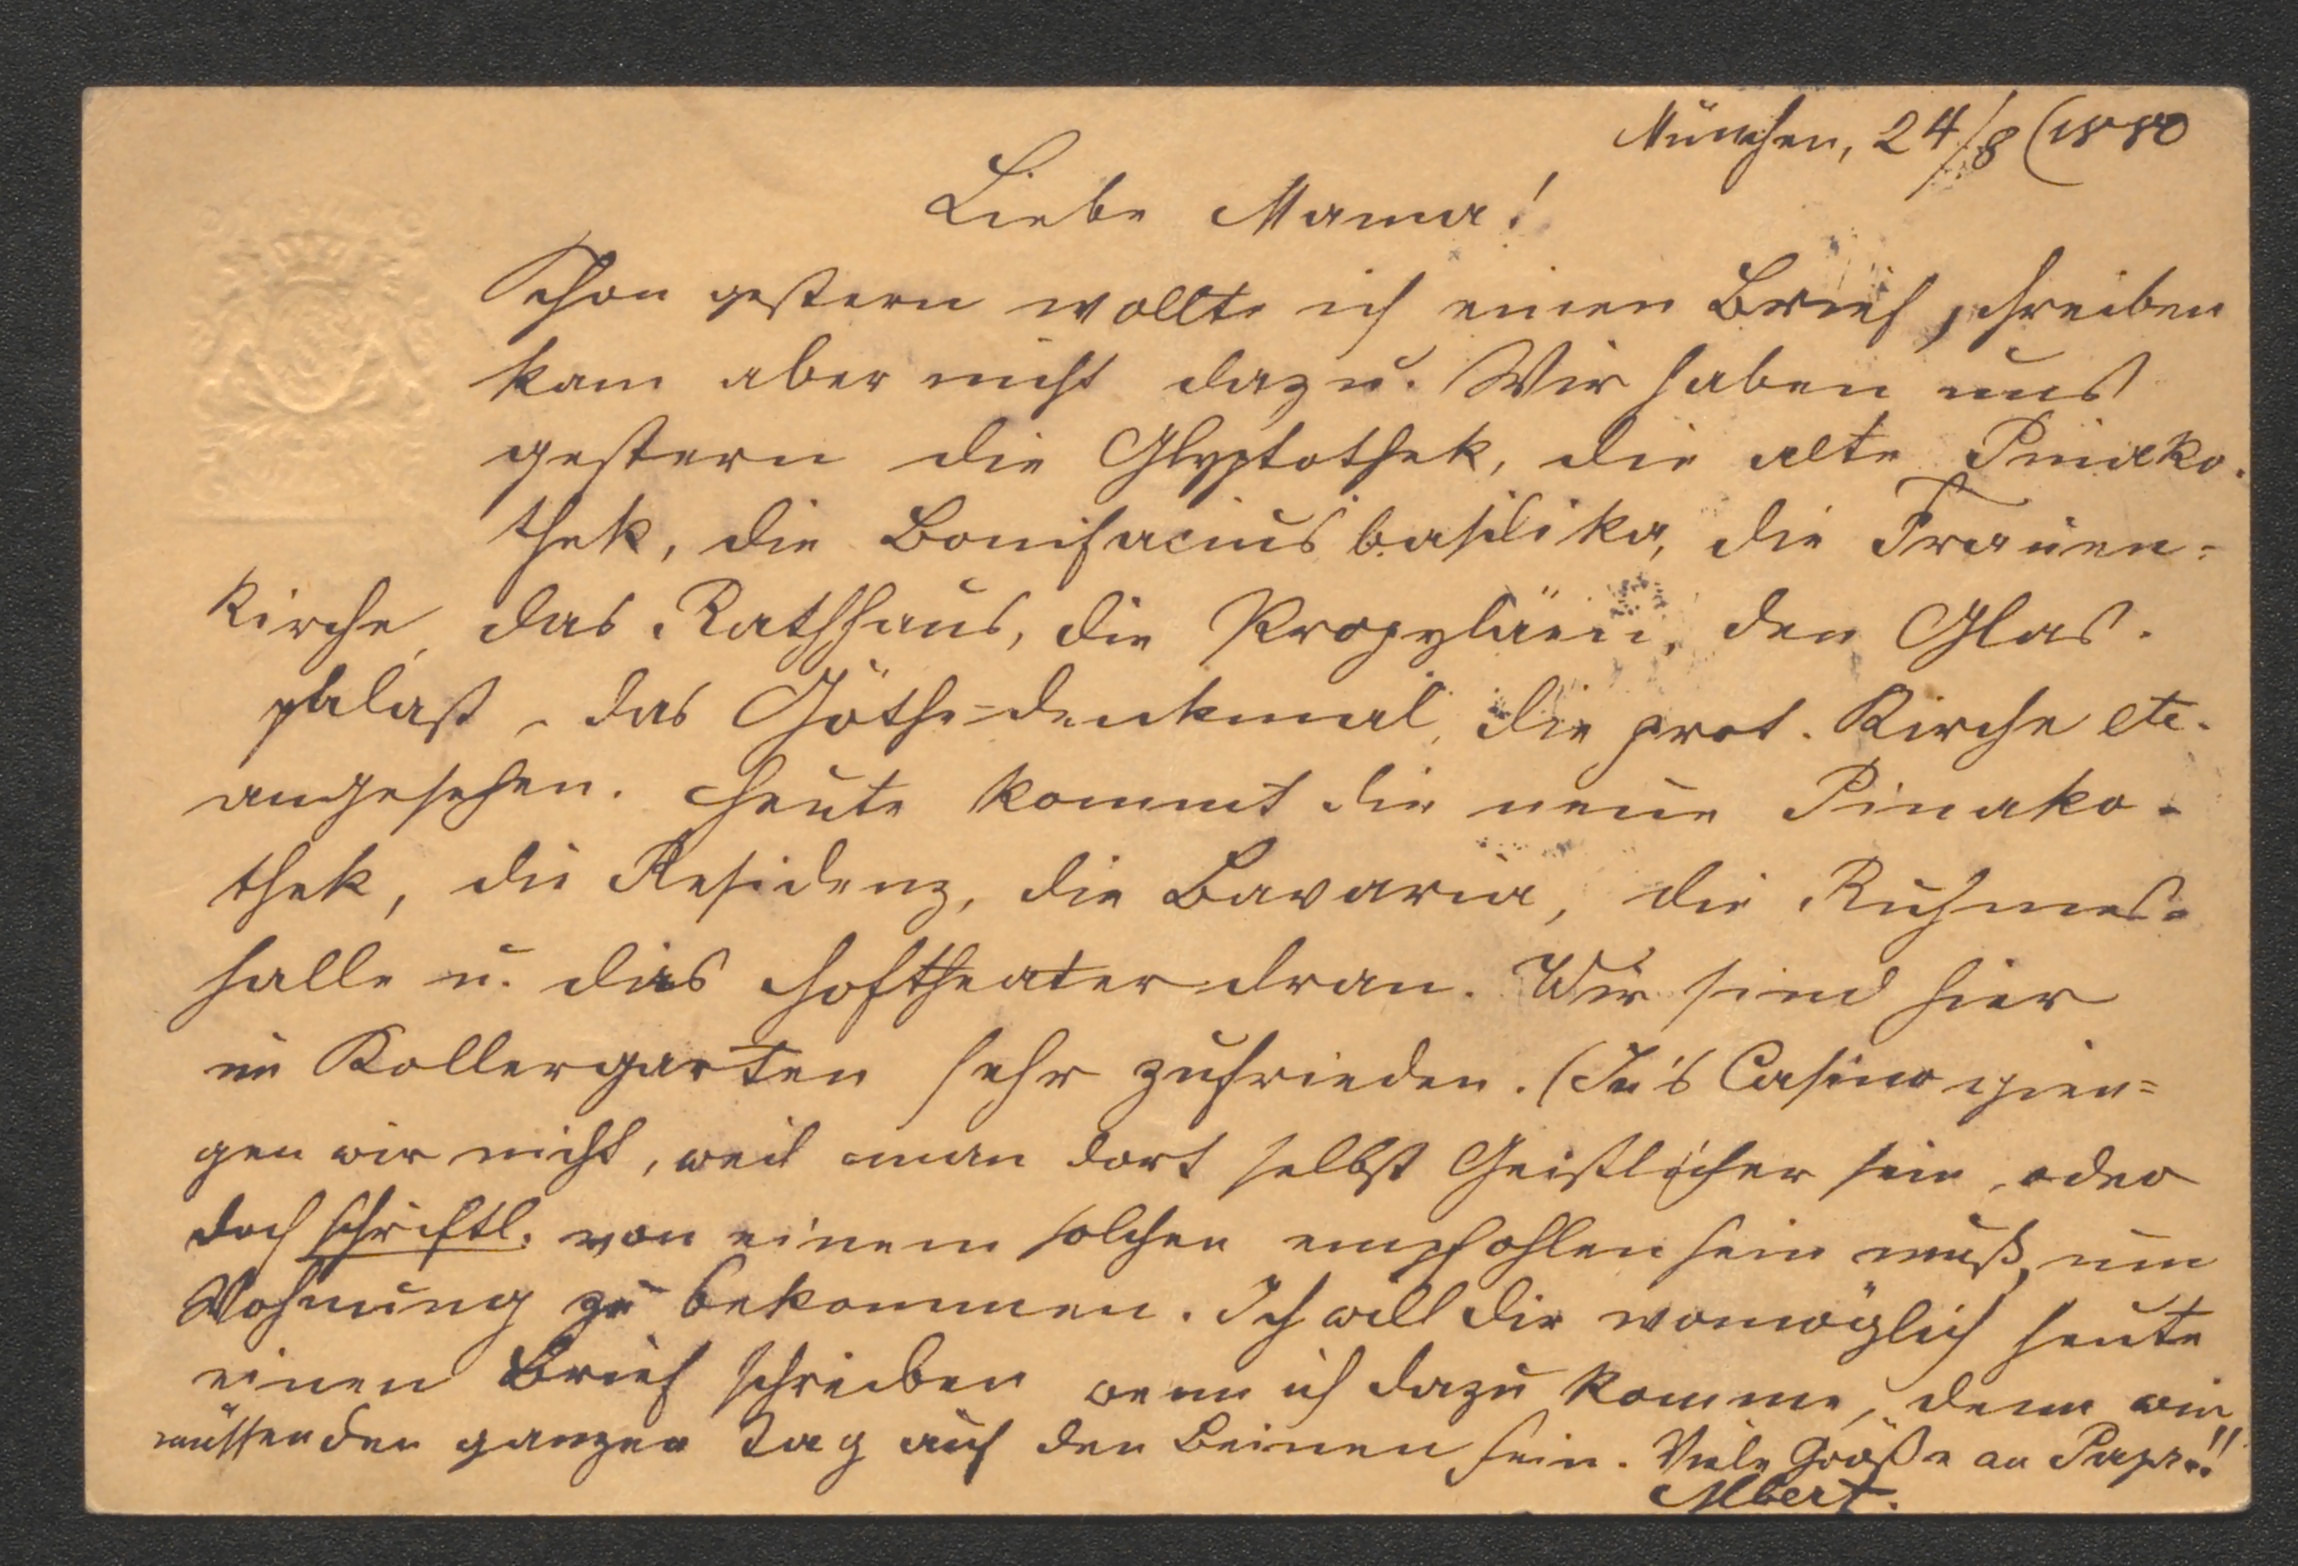 München, 24/8 (1880
Liebe Mama!
Schon gestern wollte ich einen Brief schreiben
kam aber nicht dazu. Wir haben uns
gestern die Glyptothek, die alte Pinako-
thek, die Bonifaciusbasilika, die Frauen-
kirche, das Rathhaus, die Propyläen, den Glas-
palast, das Göthe-denkmal, die prot. Kirche etc.
angesehen. Heute kommt die neue Pinako-
thek, die Residenz, die Bavaria, die Ruhmes-
halle u. das Hoftheater dran. Wir sind hier
im Kollergarten sehr zufrieden. (In's Casino gien-
gen wir nicht, weil man dort selbst Geistlicher sein, oder
doch schriftl. von einem solchen empfohlen sein muß, um
Wohnung zu bekommen. Ich will dir womöglich heute
einen Brief schreiben wenn ich dazu komme, denn wir
müssen den ganzen Tag auf den Beinen sein. Viele Grüße an Papa!!
Albert.